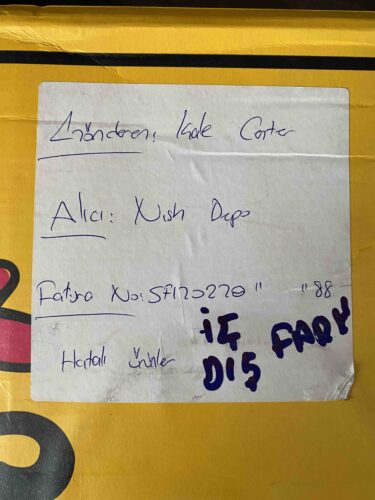 Gönderen: Kale Center
Alıcı: Nish Depo
Fatura No: SFI20220 " " 88
Hatalı ürünler
İÇ
DIŞ FARY